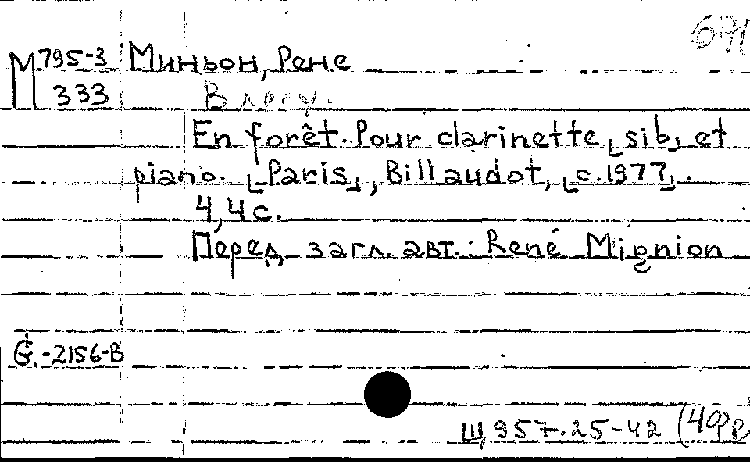 691
М 795-3 Миньон, Рене
333 В лесу.
En forêt. Pour clarinette [sib] et
piano. [Paris], Billaudot, [c.1977].
4,4 с.
Перед загл. авт.: René Mignion
G.-2156-B
Щ 957.25-42 (4Фр)